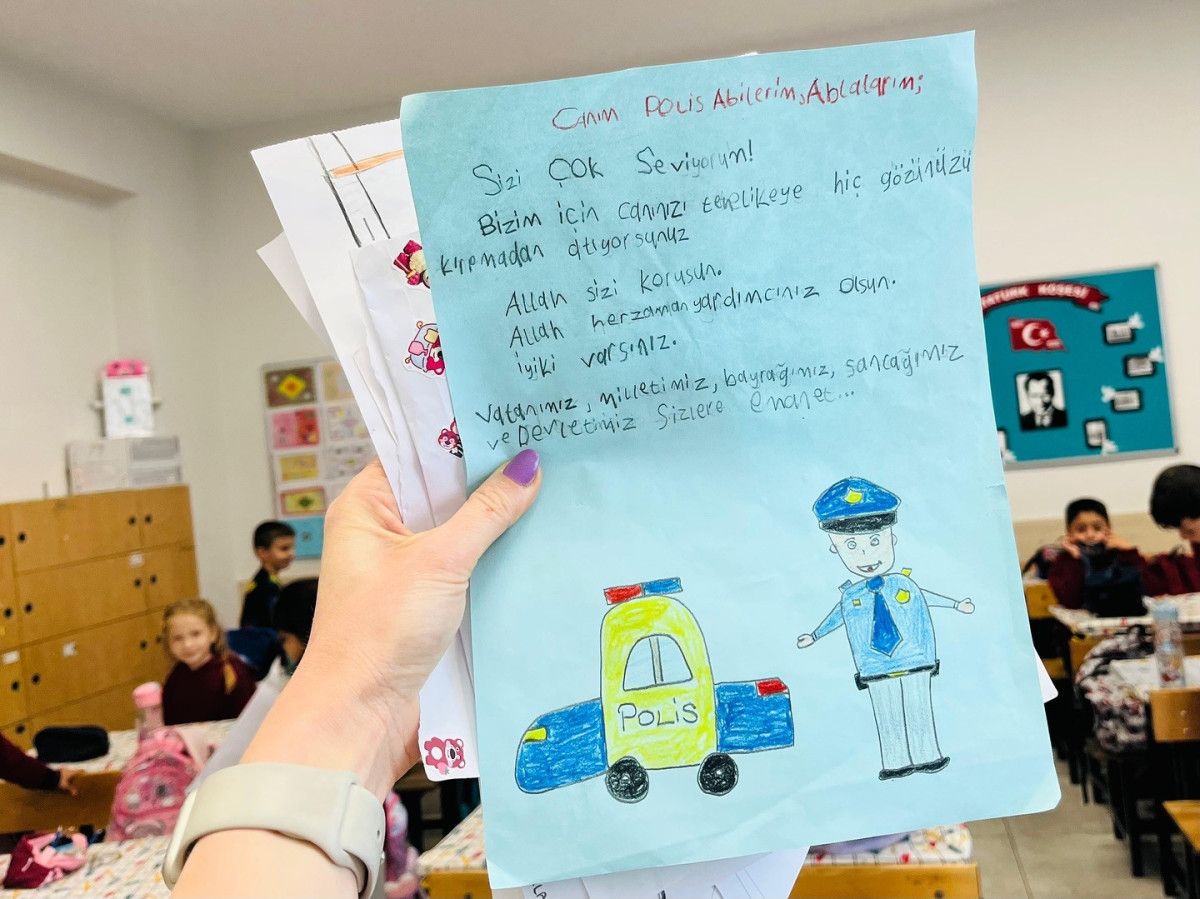 Canım Polis Abilerim, Ablalarım;
Sizi Çok Seviyorum!
Bizim için canınızı tehlikeye hiç gözünüzü
kırpmadan atıyorsunuz
Allah sizi korusun.
Allah herzaman yardımcınız olsun.
iyiki varsınız.
Vatanımız, milletimiz, bayrağımız, sancağımız
ve Devletimiz Sizlere emanet...
POLİS
ATATÜRK KÖŞESİ